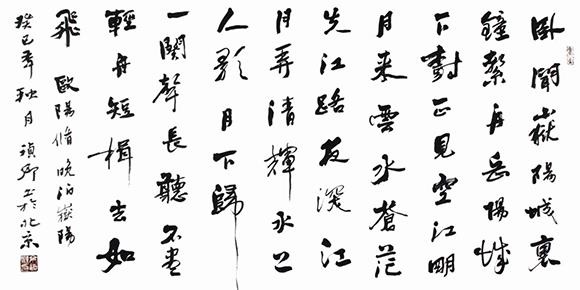 卧聞嶽陽城裏
鐘繫舟岳陽城
下樹正見空江明
月來雲水蒼茫
失江路夜深江
月弄清輝水上
人歌月下歸
一闋聲長聽不盡
輕舟短楫去如
飛 歐陽脩晚泊嶽陽
癸巳年秋月 卿书於北京